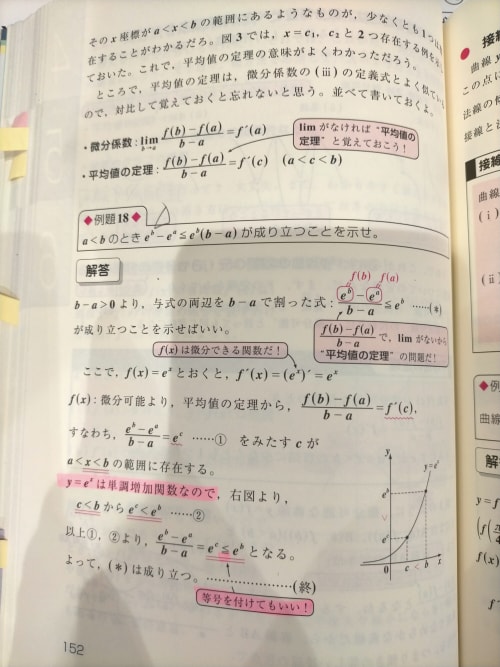 その x 座標が a<x<b の範囲にあるようなものが，少なくとも1つは
在することがわかるだろ。図3では，x=c₁，c₂ と2つ存在する例を
ておいた。これで，平均値の定理の意味がよくわかっただろう。
ところで，平均値の定理は，微分係数の(iii)の定義式とよく似ている
ので，対比して覚えておくと忘れないと思う。並べて書いておくよ。
・微分係数：lim_{b→a} (f(b)−f(a))/(b−a)=f′(a)
limがなければ“平均値の
定理”と覚えておこう！
・平均値の定理：(f(b)−f(a))/(b−a)=f′(c) (a<c<b)
◆例題18◆
a<b のとき eᵇ−eᵃ≦eᵇ(b−a) が成り立つことを示せ。
解答
f(b) f(a)
b−a>0 より，与式の両辺を b−a で割った式：(eᵇ−eᵃ)/(b−a)≦eᵇ ……(*)
が成り立つことを示せばいい。
(f(b)−f(a))/(b−a) で，limがないから
“平均値の定理”の問題だ！
f(x)は微分できる関数だ！
ここで，f(x)=eˣ とおくと，f′(x)=(eˣ)′=eˣ
f(x)：微分可能より，平均値の定理から，(f(b)−f(a))/(b−a)=f′(c)，
すなわち，(eᵇ−eᵃ)/(b−a)=eᶜ ……① をみたす c が
a<x<b の範囲に存在する。
y=eˣ は単調増加関数なので，右図より，
c<b から eᶜ<eᵇ ……②
以上①，②より，(eᵇ−eᵃ)/(b−a)=eᶜ≦eᵇ となる。
よって，(*)は成り立つ。……………………(終)
等号を付けてもいい！
y
y=eˣ
eᵇ
eᶜ
0
c < b
x
152
接線
曲線 y
この点に
法線の
接線と法
接線
曲線
(i)
(ii)
◆例
曲線
解
y=f
f′